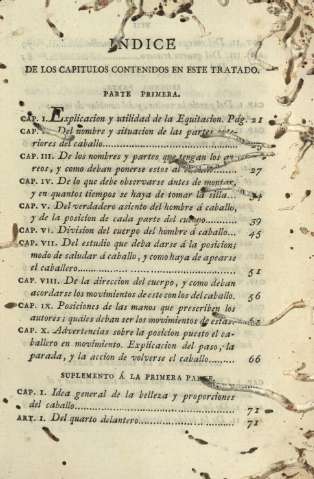 INDICE
DE LOS CAPITULOS CONTENIDOS EN ESTE TRATADO.
PARTE PRIMERA.
CAP. I. Explicacion y utilidad de la Equitacion. Pág. 21
CAP. Del nombre y situacion de las partes
riores del caballo
CAP. III. De los nombres y partes que tengan los
reos, y como deban ponerse estos al 27
CAP. IV. De lo que debe observarse ántes de montar,
y en quantos tiempos se haya de tomar la silla...
CAP. V. Del verdadero asiento del hombre á caballo,
y de la posicion de cada parte del cuerpo 39
CAP. VI. Division del cuerpo del hombre á caballo... 45
CAP. VII. Del estudio que deba darse á la posicion;
modo de saludar á caballo, y como haya de apearse
el caballero 51
CAP. VIII. De la direccion del cuerpo, y como deban
acordarse los movimientos de este con los del caballo. 56
CAP. IX. Posiciones de las manos que prescriben los
autores: quáles deban ser los movimientos de estas.
CAP. X. Advertencias sobre la posicion puesto el ca-
ballero en movimiento. Explicacion del paso, la
parada, y la accion de volverse el caballo 66
SUPLEMENTO Á LA PRIMERA PARTE.
CAP. I. Idea general de la belleza y proporciones
del caballo 71
ART. I. Del quarto delantero 71